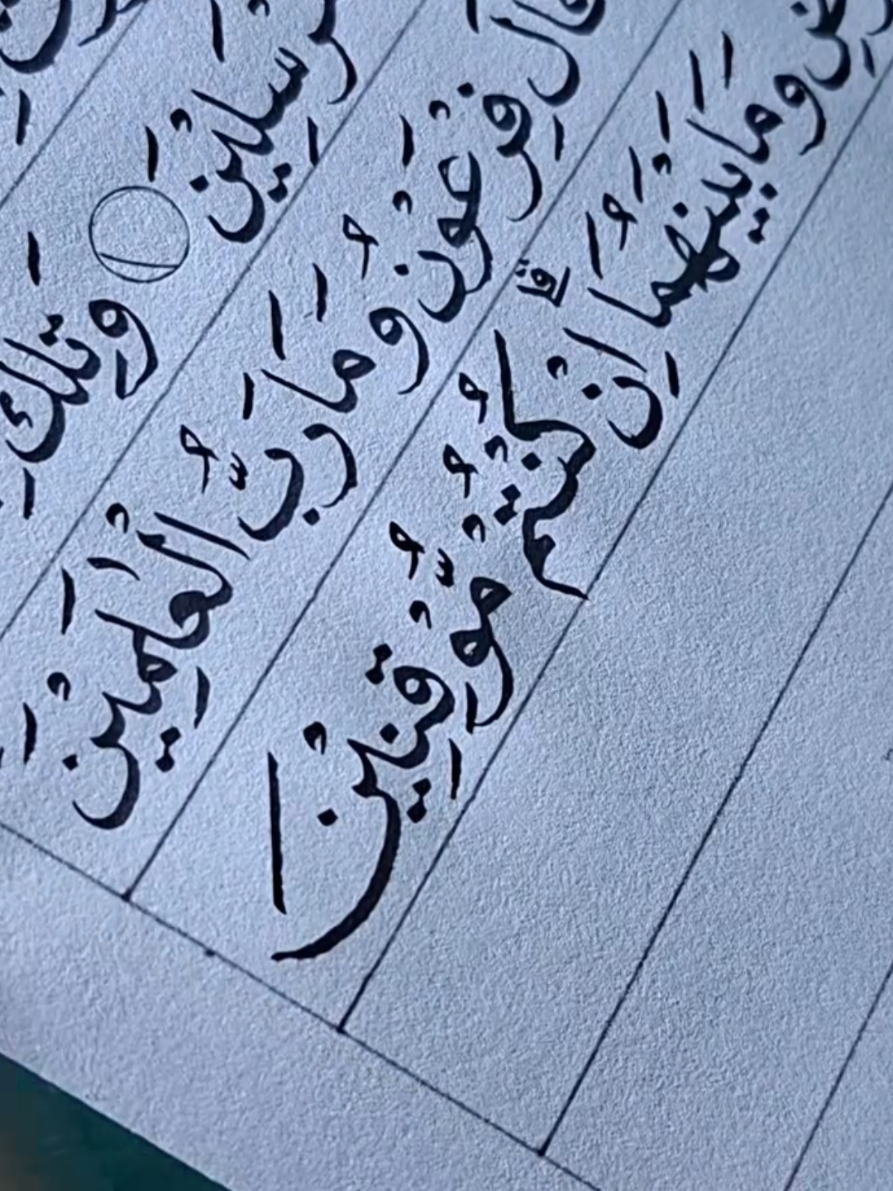 مُرْسَلِيْنَ وَتِلْكَ
قَالَ فِرْعَوْنُ وَمَا رَبُّ الْعٰلَمِيْنَ
وَمَا بَيْنَهُمَا اِنْ كُنْتُمْ مُّوْقِنِيْنَ